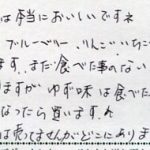 は本当においしいですネ
ブルーベリー、りんご、いちご
ます。まだ食べた事のない
ますが ゆず味は食べた
なったら買います。
は売てませんがどこにありま